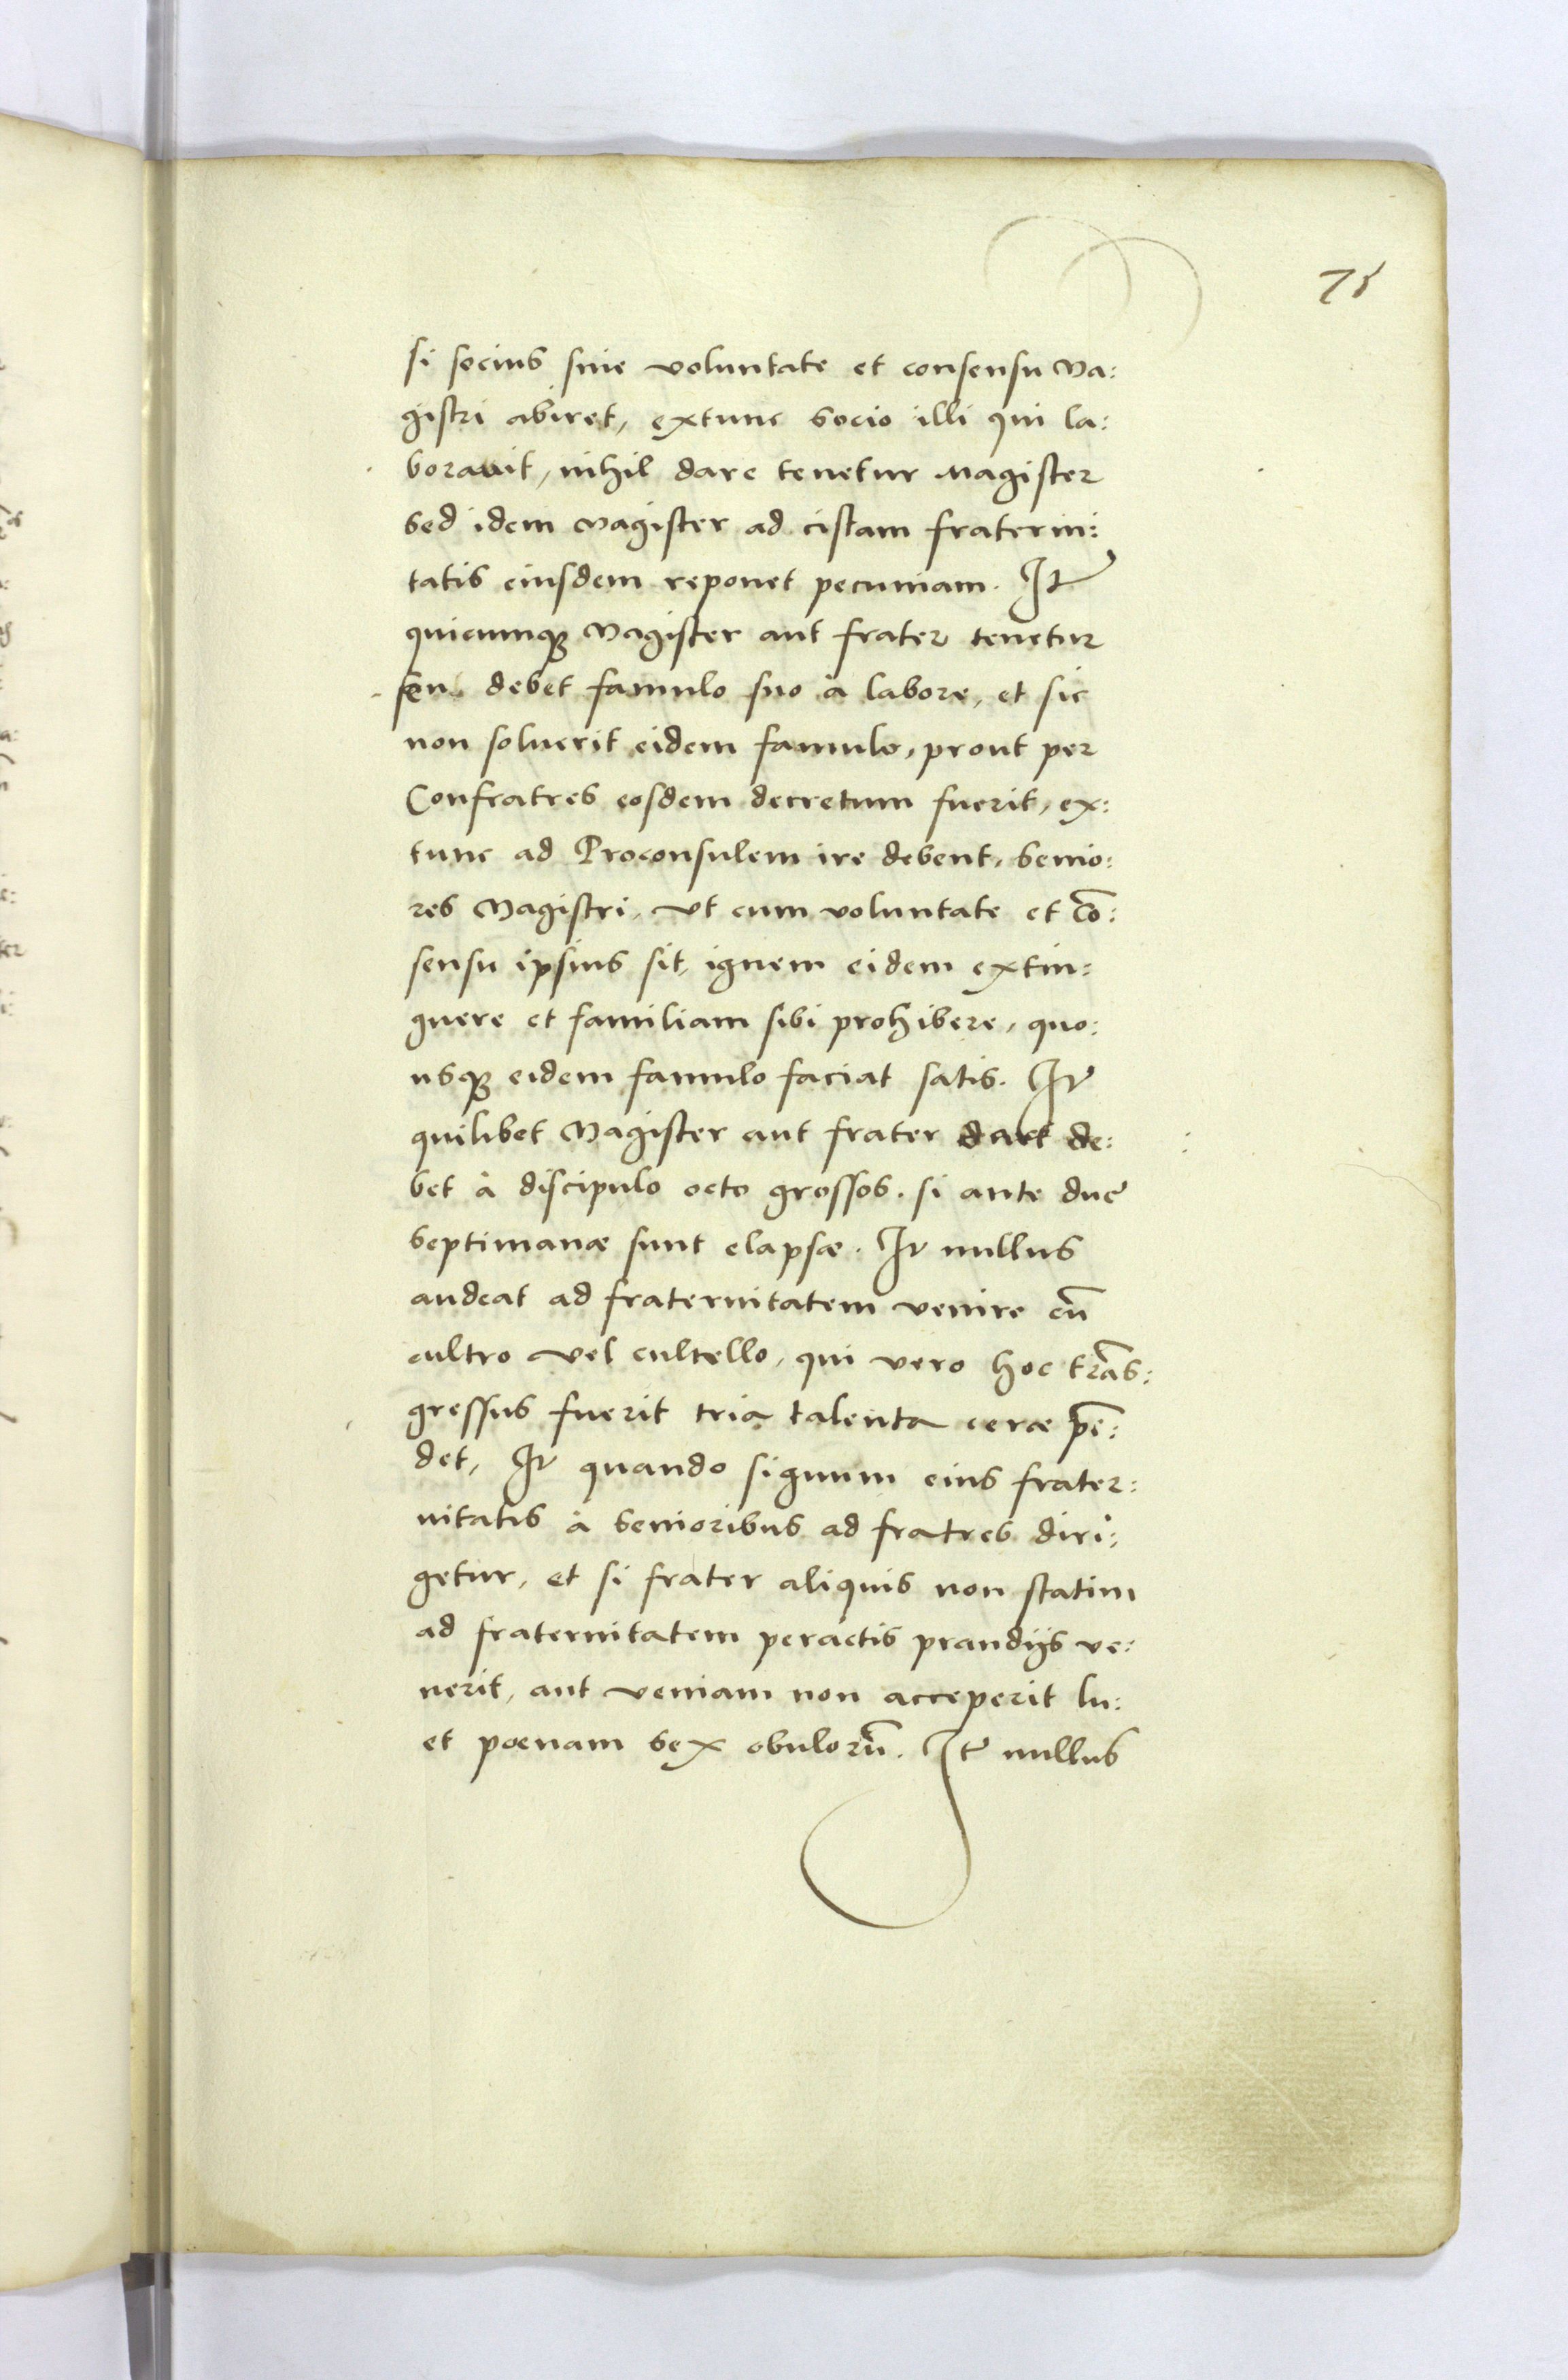 75
si socius sine voluntate et consensu Ma:
gistri abiret, extunc socio illi qui la:
borauit, nihil dare tenetur Magister
sed idem Magister ad cistam fraterni:
tatis eiusdem reponet pecuniam. It̃
quicumqꝫ Magister aut frater tenetur
seu debet famulo suo à labore, et sic
non soluerit eidem famulo, prout per
Confratres eosdem decretum fuerit, ex:
tunc ad Proconsulem ire debent, senio:
res Magistri, vt cum voluntate et cõ:
sensu ipsius sit, ignem eidem extin:
guere et familiam sibi prohibere, quo:
usqꝫ eidem famulo faciat satis. It̃
quilibet Magister aut frater dare de:
bet à discipulo octo grossos. si ante duę
septimanæ sunt elapsæ. It̃ nullus
audeat ad fraternitatem venire cũ
cultro vel cultello, qui vero hoc trãs:
gressus fuerit tria talenta ceræ pẽ:
det, It̃ quando signum eius frater:
nitatis à senioribus ad fratres diri:
getur, et si frater aliquis non statim
ad fraternitatem peractis prandijs ve:
nerit, aut veniam non acceperit lu:
et poenam sex obulorũ. It̃ nullus